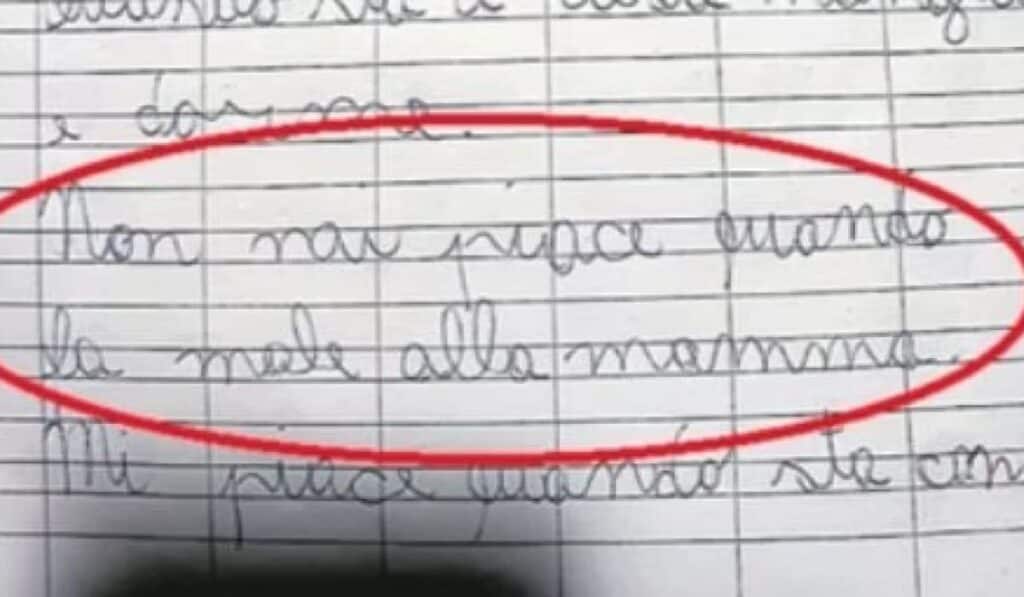 e dorme.
Non mi piace quando
fa male alla mamma.
Mi piace quando sta con